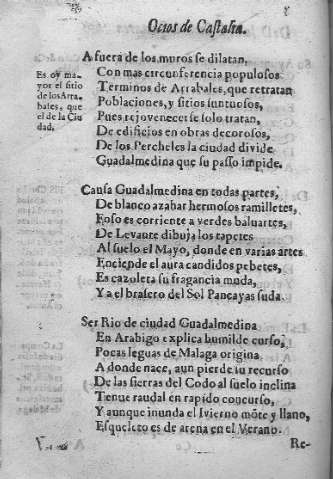 Ocios de Castalia.
A fuera de los muros se dilatan,
Con mas circunferencia populosos
Terminos de Arrabales, que retratan
Poblaciones, y sitios suntuosos,
Pues rejovenecerse solo tratan,
De edificios en obras decorosos,
De los Percheles la ciudad divide
Guadalmedina que su passo impide.
Es oy ma-
yor el sitio
de los Arra-
bales, que
el de la Ciu
dad.
Causa Guadalmedina en todas partes,
De blanco azahar hermosos ramilletes,
Foso es corriente a verdes baluartes,
De Levante dibuja los tapetes
Al suelo el Mayo, donde en varias artes
Enciende el aura candidos pebetes,
Es cazoleta su fragancia muda,
Y a el brasero del Sol Pancayas suda.
Ser Rio de ciudad Guadalmedina
En Arabigo explica humilde curso,
Pocas leguas de Malaga origina
A donde nace, aun pierde su recurso
De las sierras del Codo al suelo inclina
Tenue raudal en rapido concurso,
Y aunque inunda el Ivierno mõte y llano,
Esqueleto es de arena en el Verano.
Re-